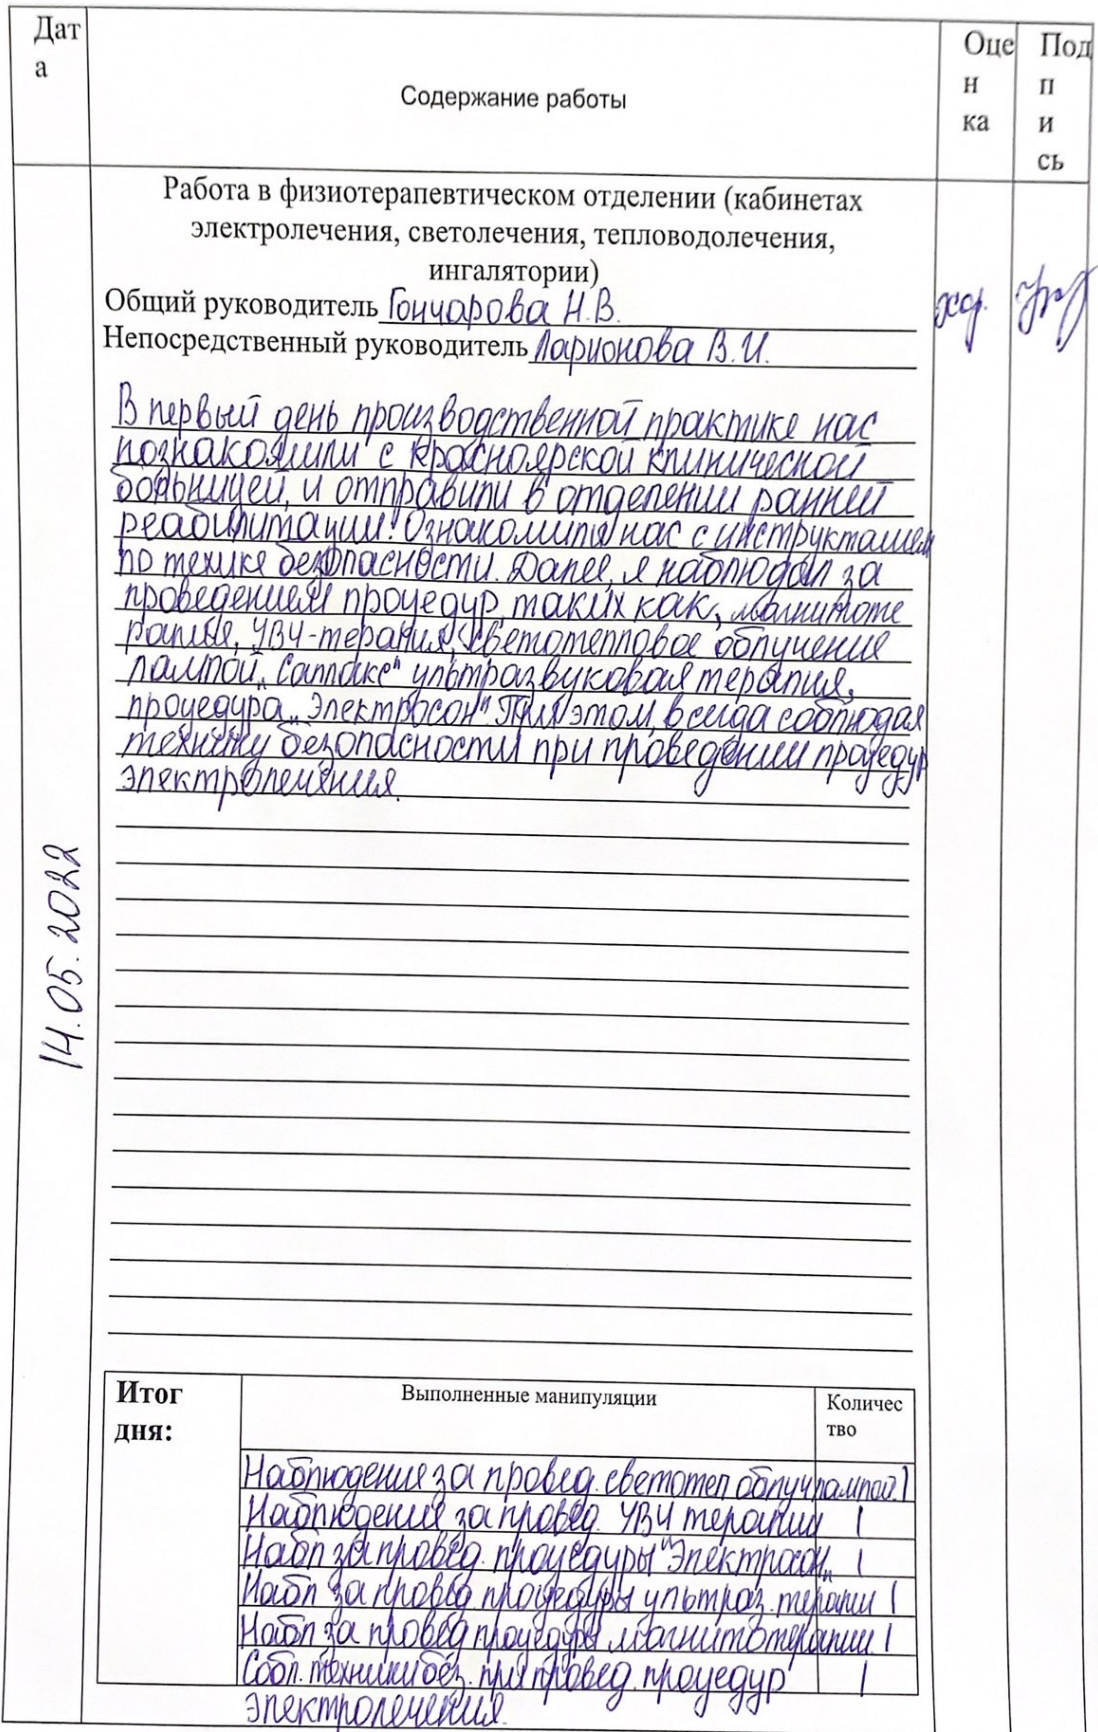 Дат
а
Содержание работы
Оце
н
ка
Под
п
и
сь
Работа в физиотерапевтическом отделении (кабинетах
электролечения, светолечения, тепловодолечения,
ингалятории)
Общий руководитель Гончарова Н.В.
Непосредственный руководитель Ларионова В.И.
хор.
В первый день производственной практике нас
познакомили с красноярской клинической
больницей, и отправили в отделении ранней
реабилитации. Ознакомили нас с инструктажем
по технике безопасности. Далее, я наблюдал за
проведением процедур, таких как, магнитоте
рапия, УВЧ-терапия, светотепловое облучение
лампой „Соллюкс" ультразвуковая терапия,
процедура „Электросон" При этом, всегда соблюдая
технику безопасности при проведении процедур
электролечения.
14.05.2022
Итог
дня:
Выполненные манипуляции
Количес
тво
Наблюдения за провед. светотеп облуч лампой. 1
Наблюдения за провед. УВЧ терапии 1
Набл за провед. процедуры "Электросон„ 1
Набл за провед процедуры ультраз. терапии 1
Набл за провед процедуры магнитотерапии. 1
Собл. техники без. при провед. процедур 1
электролечения.